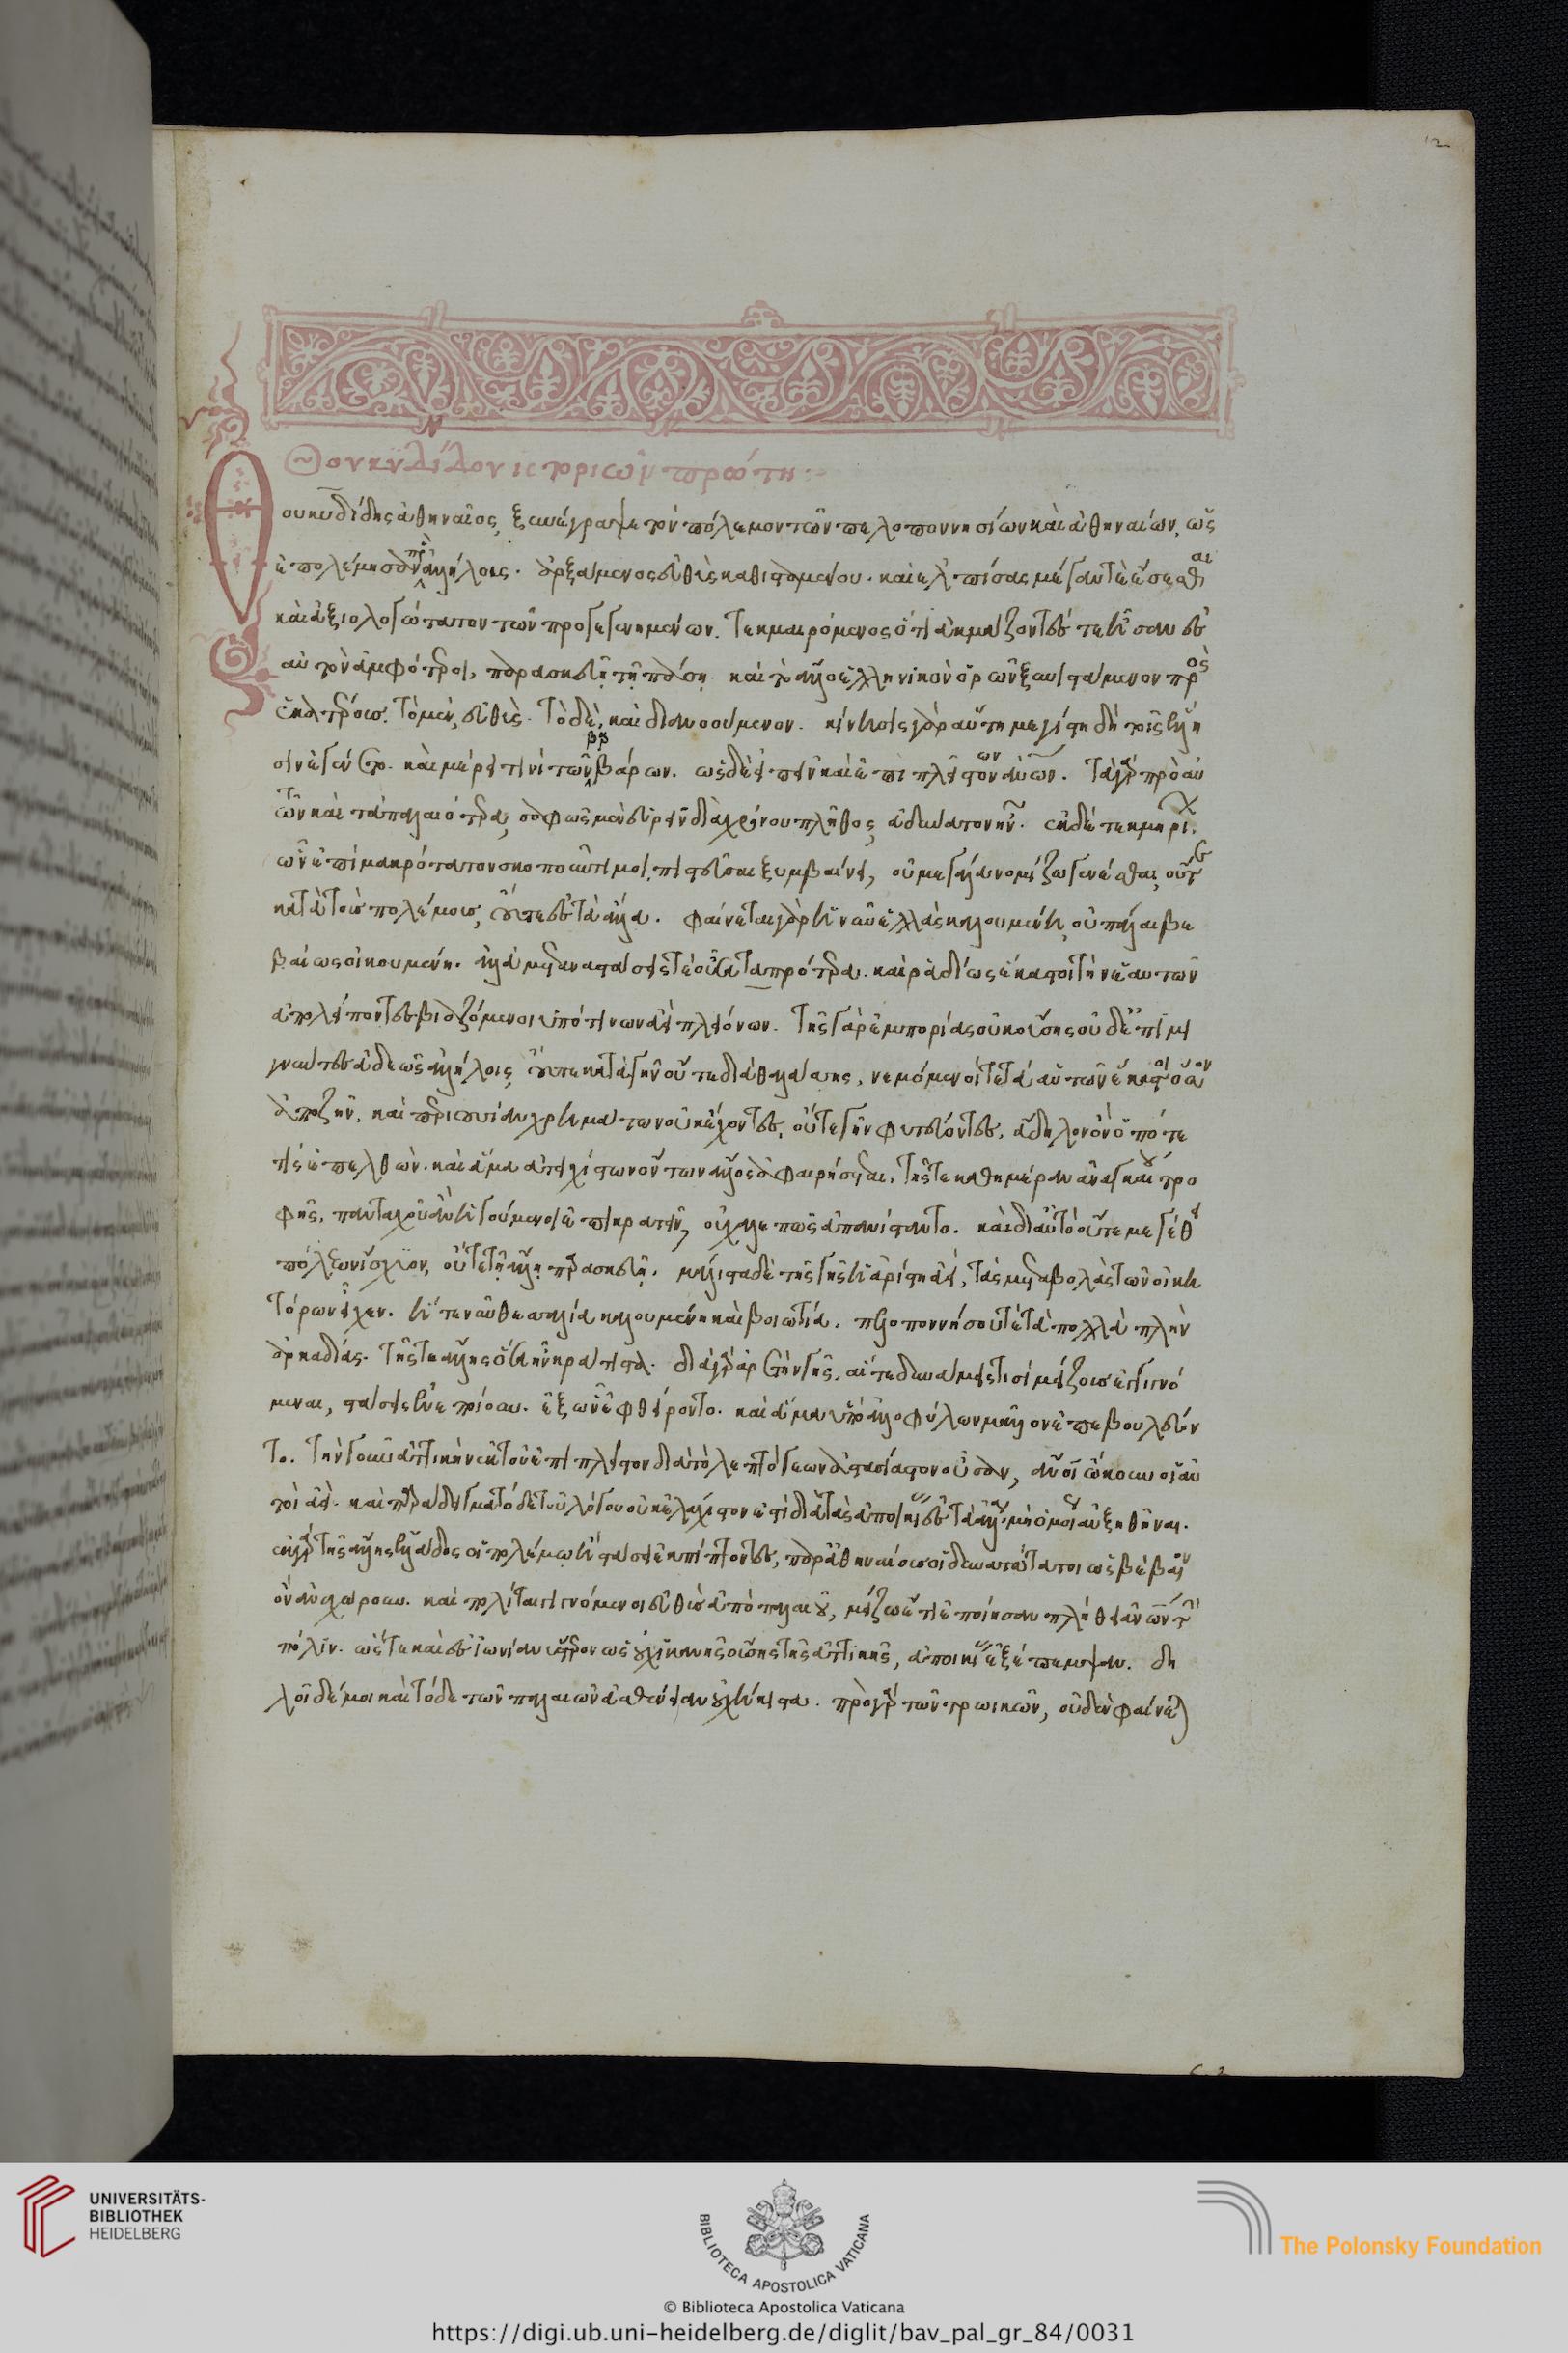 12
Θουκυδίδου ἱστοριῶν πρώτη:
Θουκυδίδης ἀθηναῖος ξυνέγραψε τὸν πόλεμον τῶν πελοποννησίων καὶ ἀθηναίων, ὡς
ἐπολέμησαν πρὸς ἀλλήλους. ἀρξάμενος εὐθὺς καθισταμένου. καὶ ἐλπίσας μέγαν τὲ ἔσεσθαι
καὶ ἀξιολογώτατον τῶν προγεγενημένων. τεκμαιρόμενος ὅτι ἀκμάζοντές τε ἦσαν ἐς
αὐτὸν ἀμφότεροι, παρασκευῇ τῇ πάσῃ. καὶ τὸ ἄλλο ἑλληνικὸν ὁρῶν ξυνιστάμενον πρὸς
ἑκατέρους. τὸ μὲν, εὐθὺς. τὸ δὲ, καὶ διανοούμενον. κίνησις γὰρ αὕτη μεγίστη δὴ τοῖς ἕλλη
σιν ἐγένετο. καὶ μέρει τινὶ τῶν βαρβάρων. ὡς δὲ εἰπεῖν καὶ ἐπὶ πλεῖστον ἀνθρώπων. τὰ γὰρ πρὸ αὐ
τῶν καὶ τὰ παλαιότερα, σαφῶς μὲν εὑρεῖν διὰ χρόνου πλῆθος ἀδύνατον ἦν. ἐκ δὲ τεκμηρί
ων ὧν ἐπὶ μακρότατον σκοποῦντί μοι πιστεῦσαι ξυμβαίνει, οὐ μεγάλα νομίζω γενέσθαι, οὔτε
κατὰ τοὺς πολέμους, οὔτε ἐς τὰ ἄλλα. φαίνεται γὰρ ἡ νῦν ἑλλὰς καλουμένη, οὐ πάλαι βε
βαίως οἰκουμένη. ἀλλὰ μεταναστάσεις τὲ οὖσαι τὰ πρότερα. καὶ ῥαδίως ἕκαστοι τὴν ἑαυτῶν
ἀπολείποντες βιαζόμενοι ὑπό τινων ἀεὶ πλειόνων. τῆς γὰρ ἐμπορίας οὐκ οὔσης οὐδ' ἐπιμι
γνύντες ἀδεῶς ἀλλήλοις οὔτε κατὰ γῆν οὔτε διὰ θαλάσσης, νεμόμενοί τε τὰ αὑτῶν ἕκαστοι ὅσον
ἀποζῆν, καὶ περιουσίαν χρημάτων οὐκ ἔχοντες, οὔτε γῆν φυτεύοντες, ἄδηλον ὂν ὁπότε
τίς ἐπελθὼν. καὶ ἅμα ἀτειχίστων ὄντων ἄλλος ἀφαιρήσεται. τῆς τε καθημέραν ἀναγκαίου τρο
φῆς, πανταχοῦ ἂν ἡγούμενοι ἐπικρατεῖν, οὐ χαλεπῶς ἀπανίσταντο. καὶ διαὐτὸ οὔτε μεγέθει
πόλεων ἴσχυον, οὔτε τῇ ἄλλῃ παρασκευῇ. μάλιστα δὲ τῆς γῆς ἡ ἀρίστη ἀεὶ, τὰς μεταβολὰς τῶν οἰκη
τόρων εἶχεν. ἥ τε νῦν θεσσαλία καλουμένη καὶ βοιωτία. πελοποννήσου τὲ τὰ πολλὰ πλὴν
ἀρκαδίας. τῆς τε ἄλλης ὅσα ἦν κράτιστα. διὰ γὰρ ἀρετὴν γῆς, αἵ τε δυνάμεις τισὶ μείζους ἐγγιγνό
μεναι, στάσεις ἐνεποίουν. ἐξ ὧν ἐφθείροντο. καὶ ἅμα ὑπὸ ἀλλοφύλων μᾶλλον ἐπεβουλεύον
το. τὴν γοῦν ἀττικὴν ἐκ τοῦ ἐπὶ πλεῖστον διὰ τὸ λεπτόγεων ἀστασίαστον οὖσαν, ἄνθρωποι ὤκουν οἱ αὐ
τοὶ ἀεί. καὶ παράδειγμα τόδε τοῦ λόγου οὐκ ἐλάχιστόν ἐστι διὰ τὰς ἀποικίας ἐς τὰ ἄλλα μὴ ὁμοίως αὐξηθῆναι.
ἐκ γὰρ τῆς ἄλλης ἑλλάδος οἱ πολέμῳ ἢ στάσει ἐκπίπτοντες, παρ' ἀθηναίους οἱ δυνατώτατοι ὡς βέβαιον
ὂν ἀνεχώρουν. καὶ πολῖται γιγνόμενοι εὐθὺς ἀπὸ παλαιοῦ, μείζω ἔτι ἐποίησαν πλήθει ἀνθρώπων τὴν
πόλιν. ὥστε καὶ ἐς ἰωνίαν ὕστερον ὡς οὐχ ἱκανῆς οὔσης τῆς ἀττικῆς, ἀποικίας ἐξέπεμψαν. δη
λοῖ δέ μοι καὶ τόδε τῶν παλαιῶν ἀσθένειαν οὐχ ἥκιστα. πρὸ γὰρ τῶν τρωικῶν, οὐδὲν φαίνεται
UNIVERSITÄTS-
BIBLIOTHEK
HEIDELBERG
BIBLIOTECA APOSTOLICA VATICANA
The Polonsky Foundation
© Biblioteca Apostolica Vaticana
https://digi.ub.uni-heidelberg.de/diglit/bav_pal_gr_84/0031